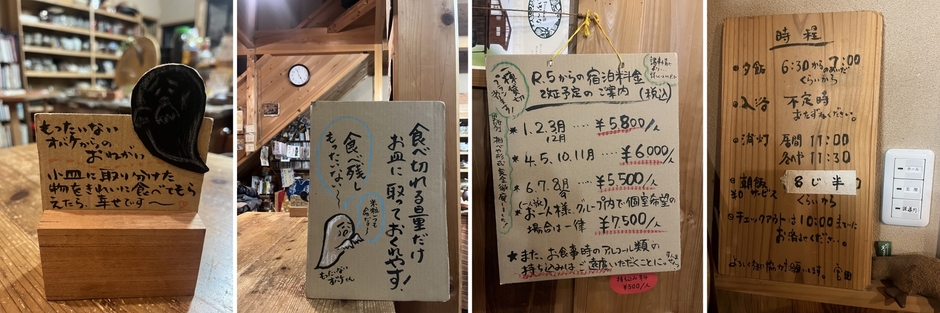 もったいない
オバケからの
おねがい
小皿に取り分けた
物をきれいに食べてもら
えたら、幸せです〜
食べ切れる量だけ
お皿に取っておくれやす!
食べ残し
もったいなぁい
もったいない
R.5からの宿泊料金
改正予定のご案内(税込)
★1.2.3月 ‥‥¥5800/人
12月
★4.5.10.11月 ‥‥¥6000/人
★6.7.8月 ‥‥¥5500/人
お一人様、グループ内で個室希望の
場合は一律 ¥7500/人
★また、お食事時のアルコール類の
持ち込みはご遠慮いただくことに。
¥300/人
時程
夕飯 6:30から7:00のあいだ
くらいから
入浴 不定時
おたずねください。
消灯 居間 11:00
各部 11:30
朝飯 8じ半
サービス くらいから
チェックアウトは10:00までに
お済ませください。